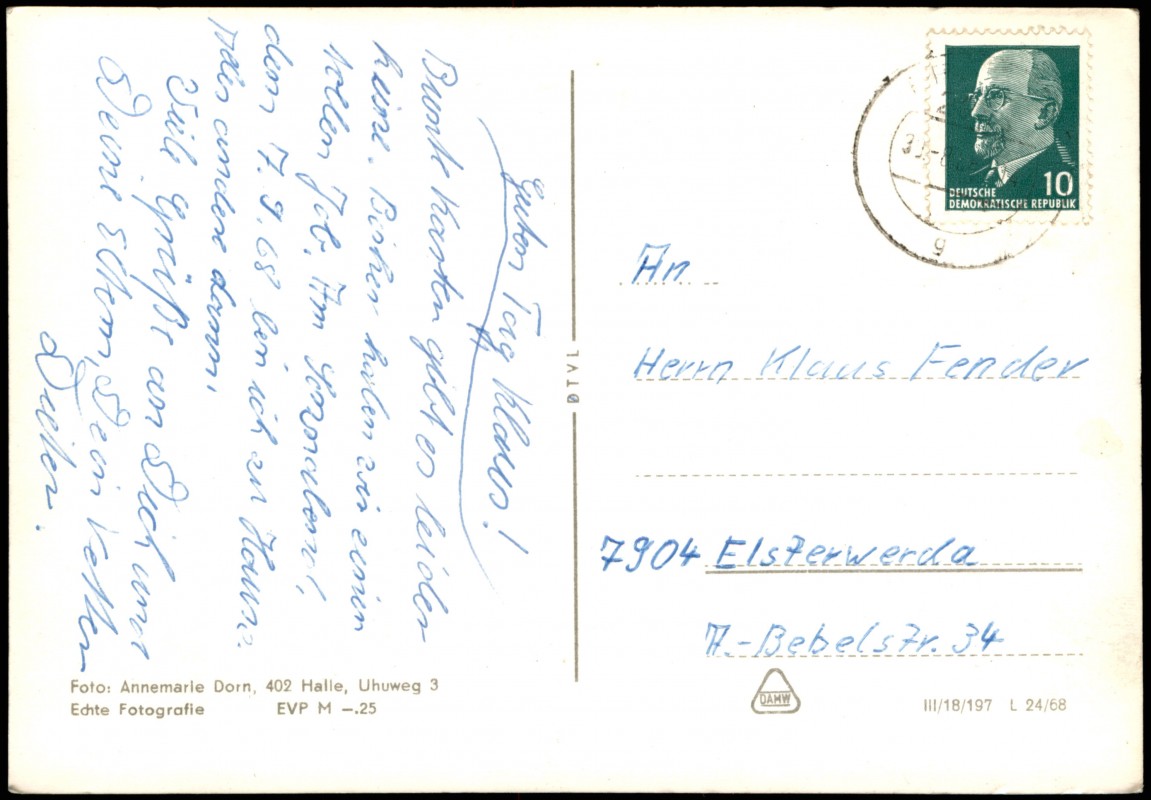 Guten Tag Klaus!
Bunte Karten gibt es leider
keine. Bisher haben wir einen
tollen Job. Am Sonnabend,
dem 7.9.68 bin ich zu Hause.
Alles andere dann.
Viele Grüße an Dich und
Deine Eltern, Dein Vetter
Dieter.
Foto: Annemarie Dorn, 402 Halle, Uhuweg 3
Echte Fotografie EVP M —.25
ØTVL
DEUTSCHE
DEMOKRATISCHE REPUBLIK
10
g
An
Herrn Klaus Fender
7904 Elsterwerda
A.-Bebelstr. 34
DAMW
III/18/197 L 24/68